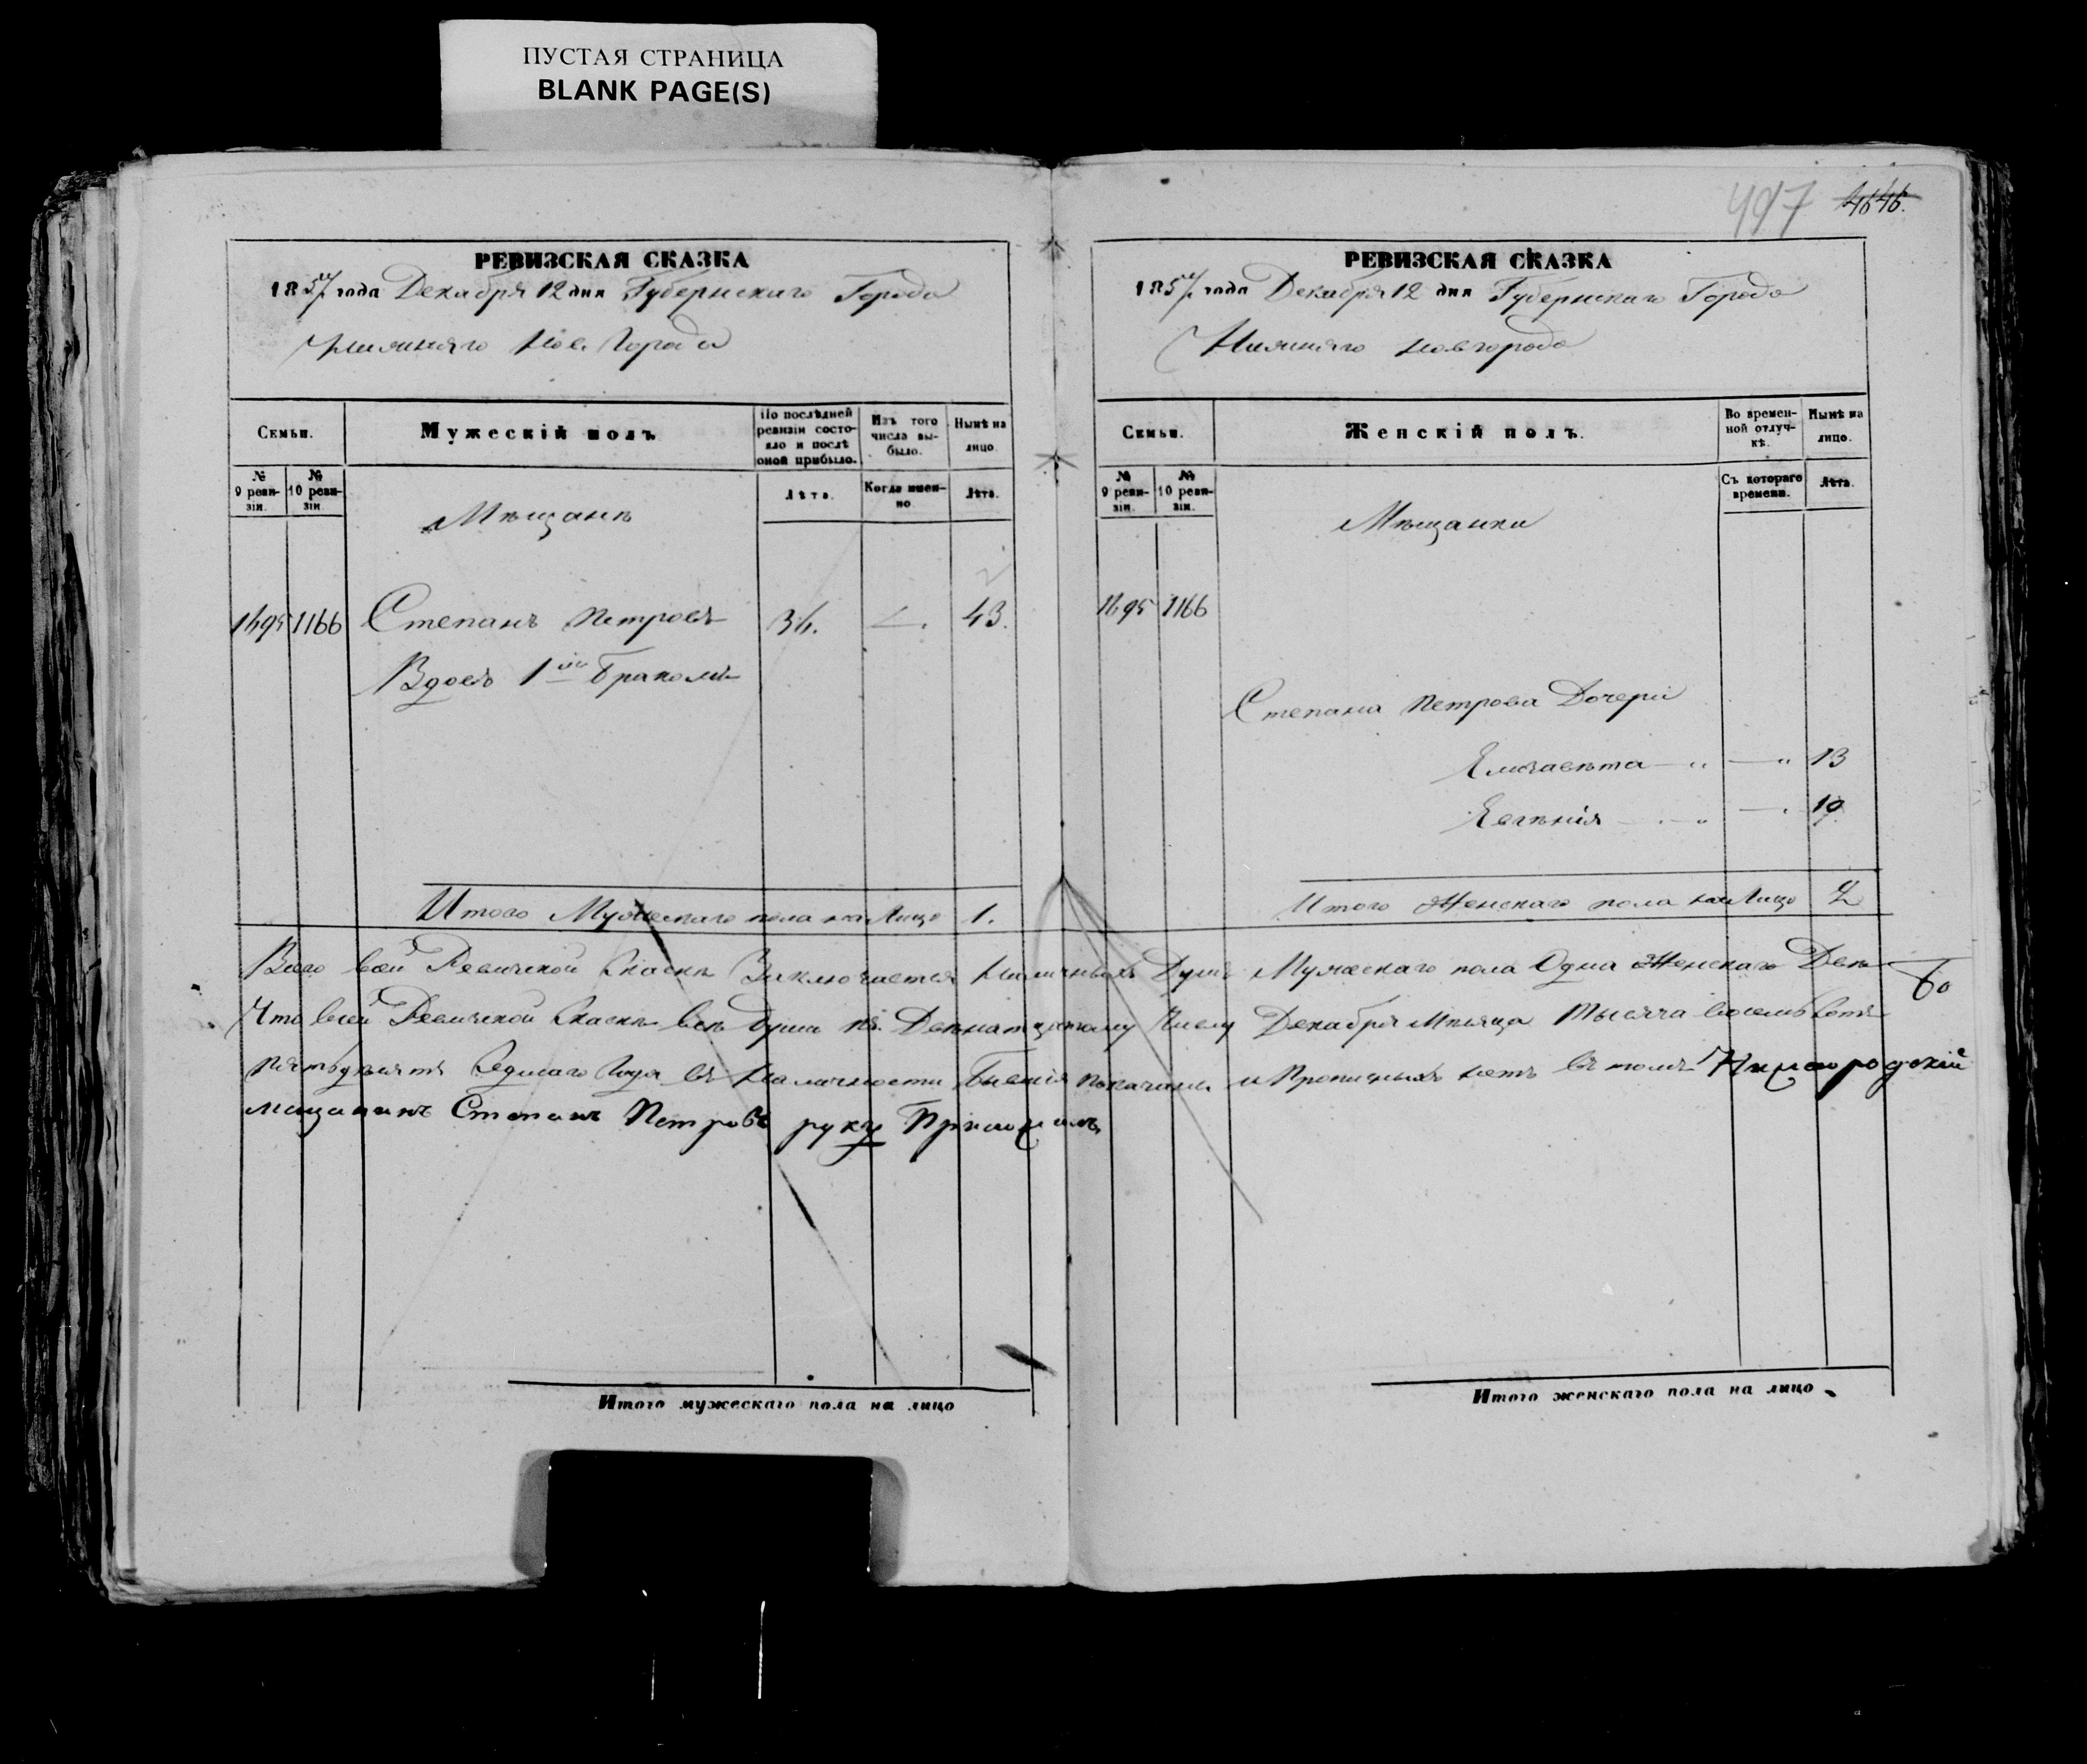 ПУСТАЯ СТРАНИЦА
BLANK PAGE(S)
РЕВИЗСКАЯ СКАЗКА
1857 года Декабря 12 дня Губернскаго Города
Нижняго Нов Города
Семьи.
Мужескій полъ
По послѣдней ревизіи состояло и послѣ оной прибыло.
Изъ того числа выбыло.
Нынѣ на лицо.
№ 9 ревизіи.
№ 10 ревизіи.
Лѣта.
Когда именно
Лѣта.
Мѣщанъ
1495 1166 Степанъ Петровъ 34. 43.
Вдовъ 1мъ Бракомъ
Итого Мужескаго пола на Лицо 1.
497 4646.
РЕВИЗСКАЯ СКАЗКА
1857 года Декабря 12 дня Губернскаго Города
Нижняго Новгорода
Семьи.
Женскій полъ.
Во временной отлучкѣ.
Нынѣ на лицо.
№ 9 ревизіи.
№ 10 ревизіи.
Съ котораго времени.
Лѣта.
Мѣщанки
1495 1166
Степана Петрова Дочери
Елизавѣта — „ — „ 13
Евгѣнія — „ — „ 19
Итого Женскаго пола на Лицо 2
Всего всей Ревизской Скаскѣ Заключается Наличныхъ Душъ Мужескаго пола Одна Женскаго Двѣ
Что всей Ревизской Скаскѣ всѣ Души къ Двѣнатцатому Числу Декабря Мѣсяца Тысяча восемь сотъ
Пятьдѣсятъ Седмаго Года въ Наличности Бывшія показаны и Прописныхъ нетъ въ томъ Нижегородскій
мещанинъ Степанъ Петровъ руку Приложилъ
Итого мужескаго пола на лицо
Итого женскаго пола на лицо